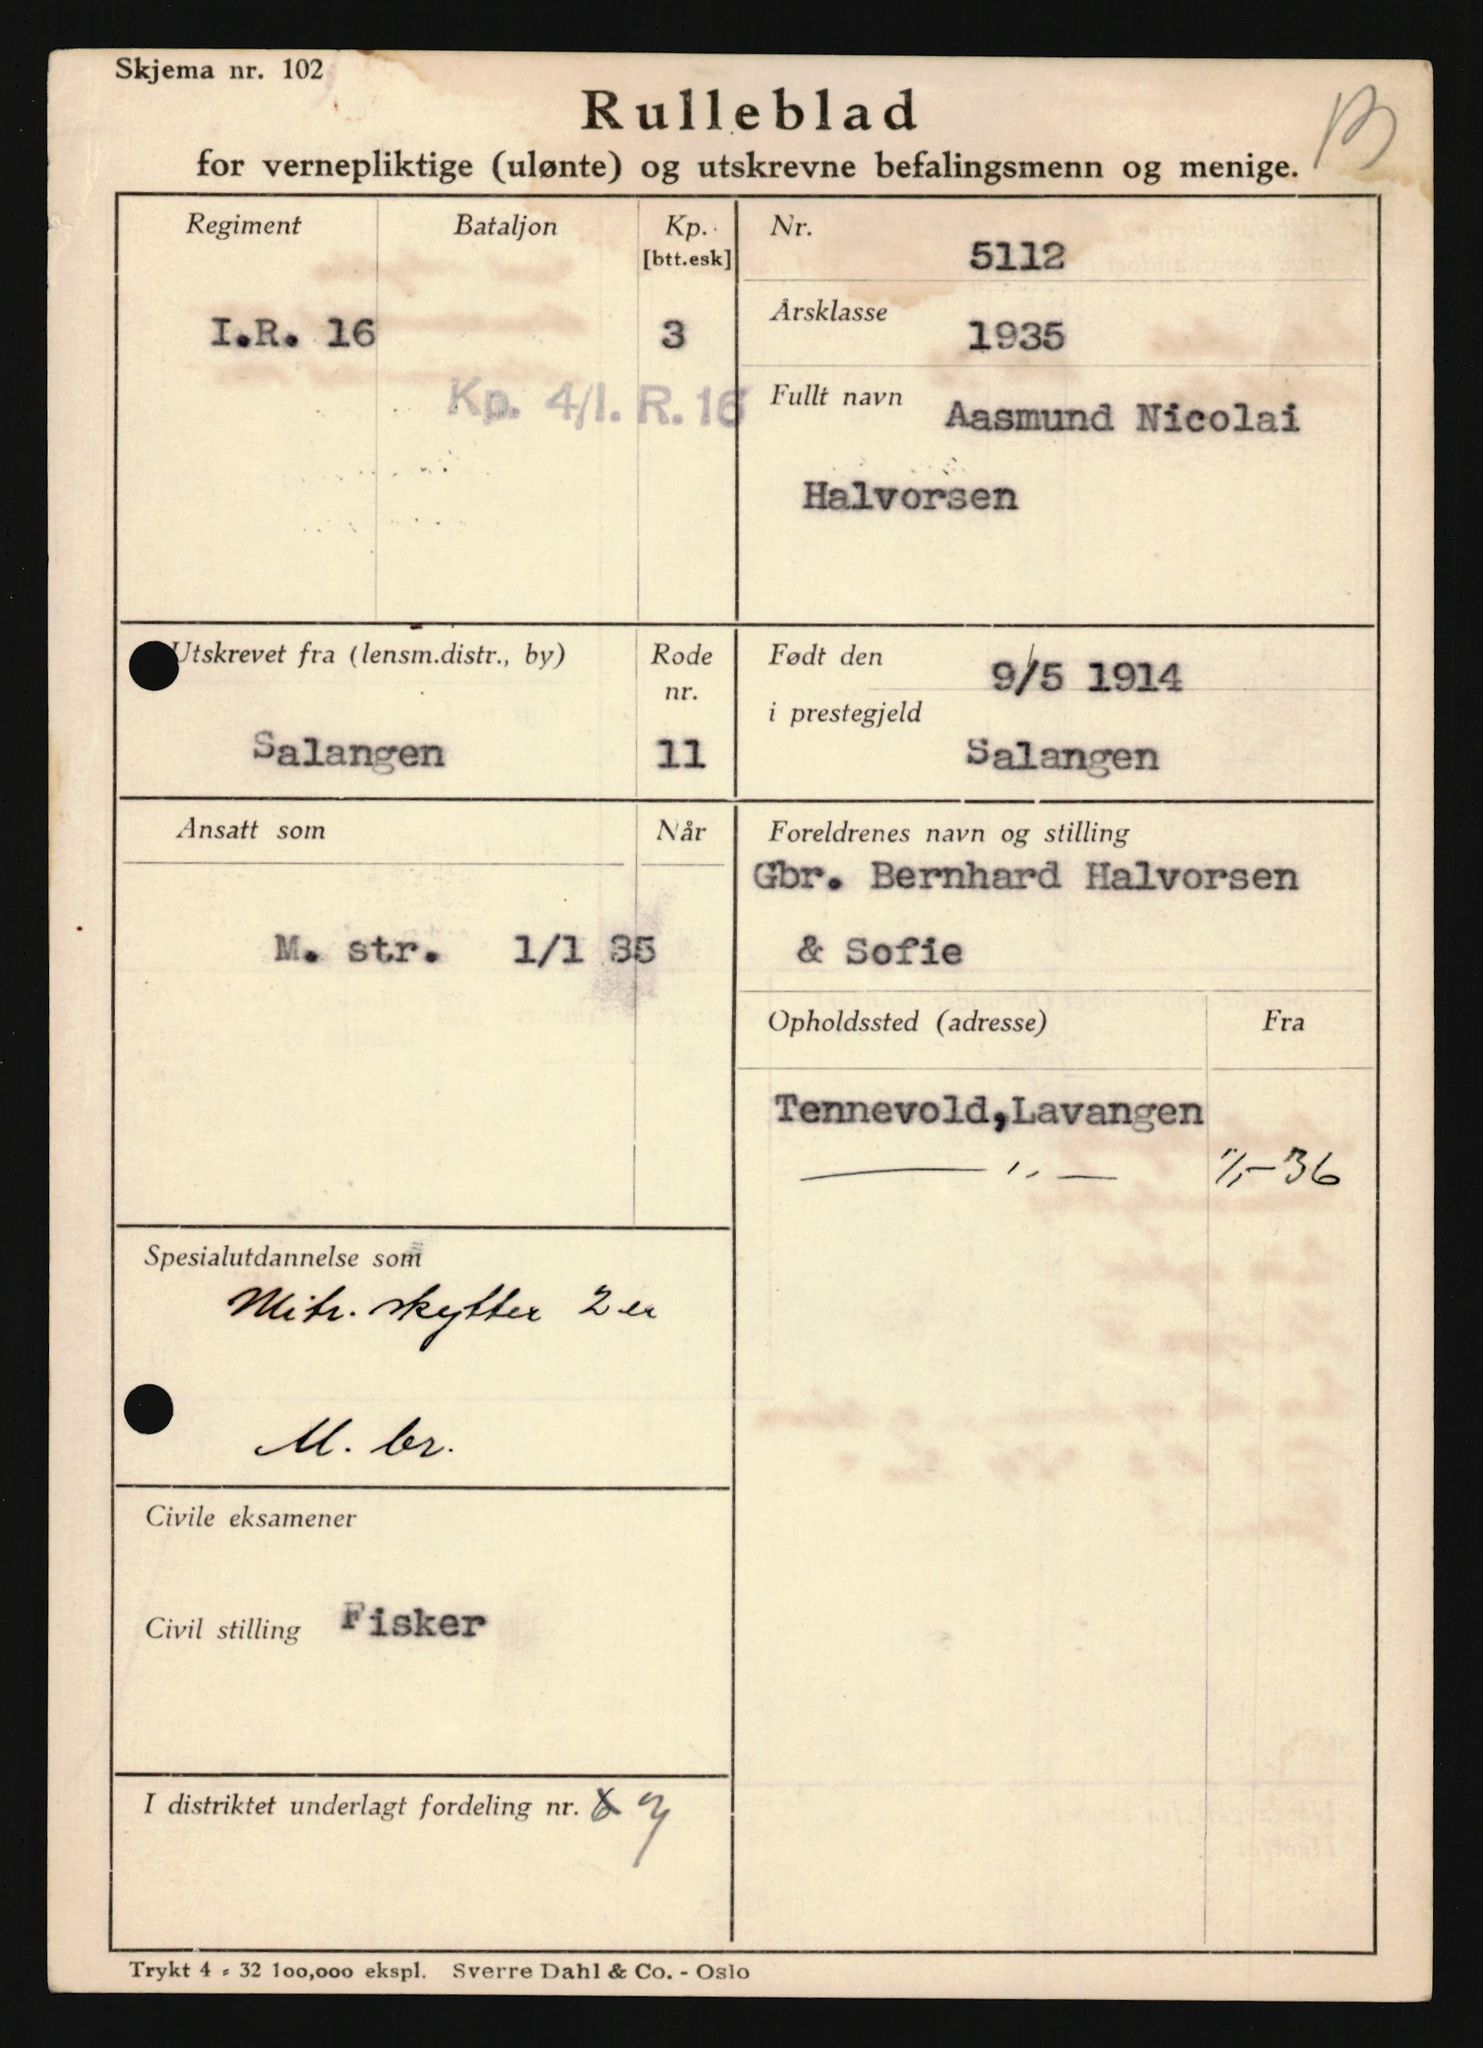 Skjema nr. 102
Rulleblad
for vernepliktige (ulønte) og utskrevne befalingsmenn og menige.
B
Regiment
Bataljon
Kp.
[btt.esk]
I.R. 16
3
Kp. 4/I.R.16
Nr.
5112
Årsklasse
1935
Fullt navn
Aasmund Nicolai
Halvorsen
Utskrevet fra (lensm.distr., by)
Rode
nr.
Salangen
11
Født den
9/5 1914
i prestegjeld
Salangen
Ansatt som
Når
M. str. 1/1 35
Foreldrenes navn og stilling
Gbr. Bernhard Halvorsen
& Sofie
Opholdssted (adresse)
Fra
Tennevold,Lavangen
— " —
1/1-36
Spesialutdannelse som
Mitr. skytter 2er
M. br.
Civile eksamener
Civil stilling Fisker
I distriktet underlagt fordeling nr. 6 7
Trykt 4 - 32 100,000 ekspl. Sverre Dahl & Co. - Oslo